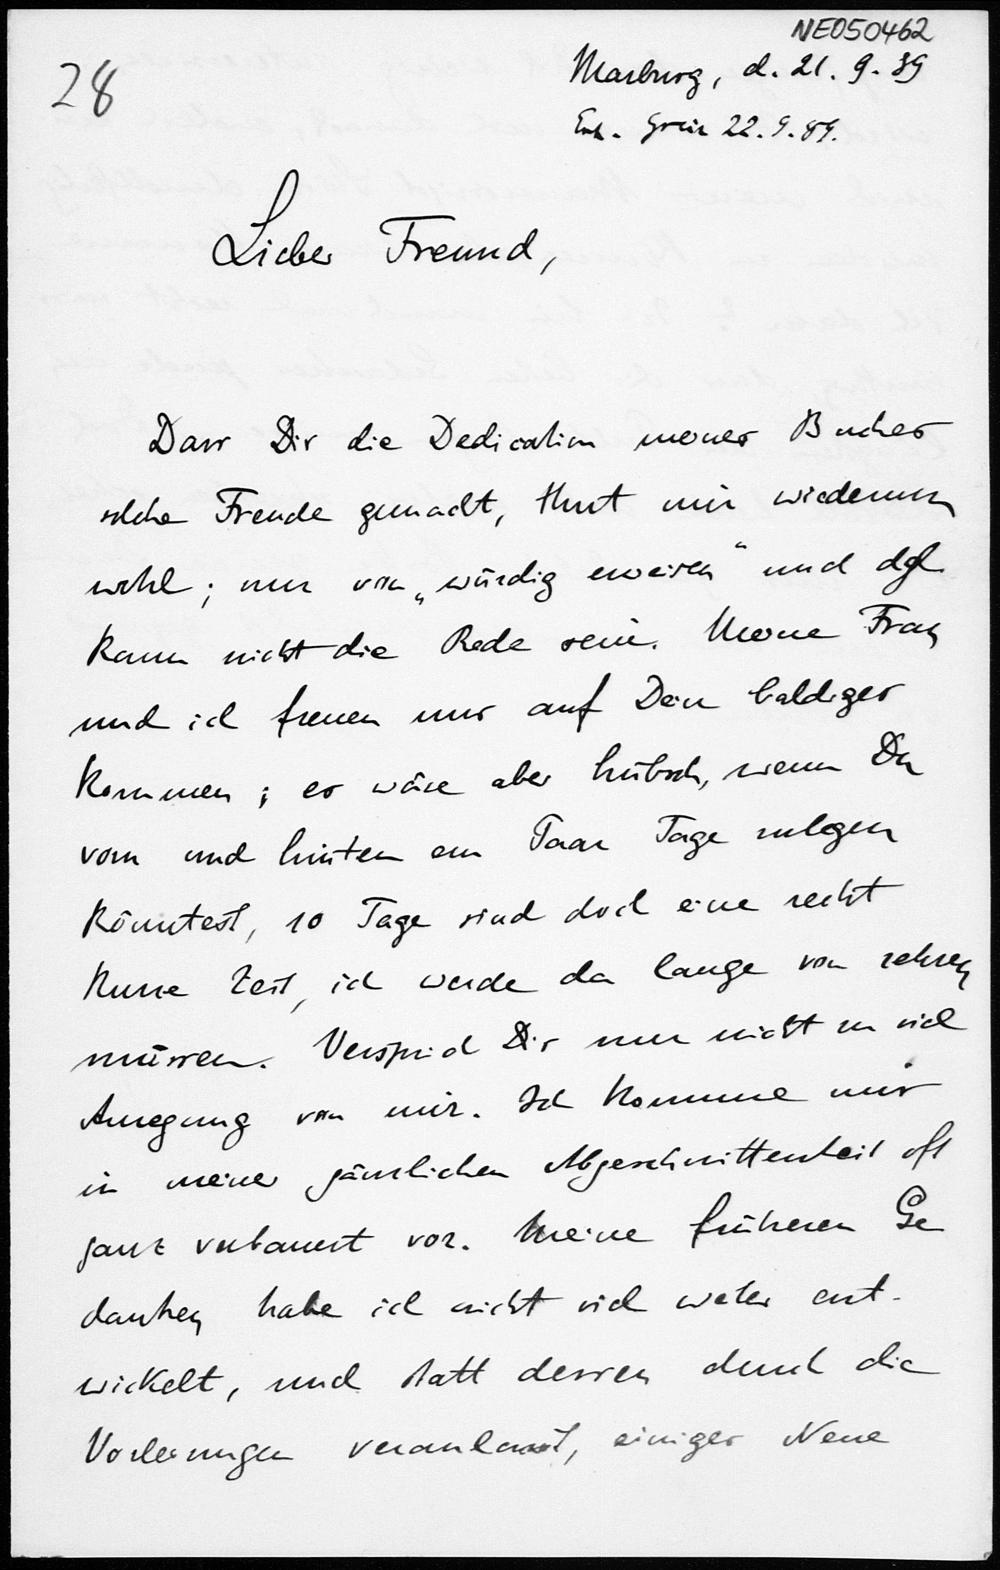 NE050462
28
Marburg, d. 21. 9. 89
Erh. Grein 22. 9. 89.
Lieber Freund,
Dass Dir die Dedication meines Buches
solche Freude gemacht, thut mir wiederum
wohl; nur von „würdig erweisen" und dgl.
kann nicht die Rede sein. Meine Frau
und ich freuen uns auf Dein baldiges
Kommen; es wäre aber hübsch, wenn Du
vorn und hinten ein Paar Tage zulegen
könntest, 10 Tage sind doch eine recht
kurze Zeit, ich werde da lange von zehren
müssen. Versprich Dir nur nicht zu viel
Anregung von mir. Ich komme mir
in meiner gänzlichen Abgeschnittenheit oft
ganz verbauert vor. Meine früheren Ge
danken habe ich nicht viel weiter ent-
wickelt, und statt dessen durch die
Vorlesungen veranlasst, einiges Neue